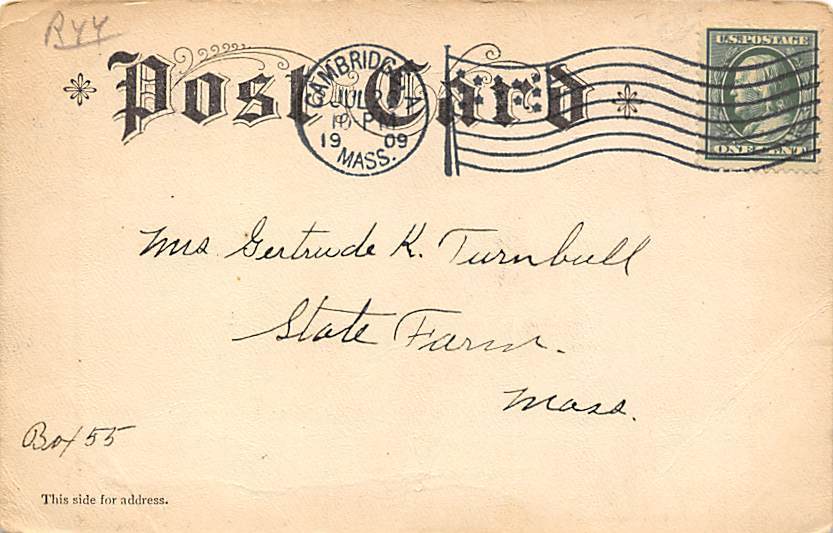 R44
Post Card
CAMBRIDGE STA.
JUL
PM
1909
MASS.
U.S. POSTAGE
ONE CENT
Mrs Gertrude K. Turnbull
State Farm.
Mass.
Box 55
This side for address.